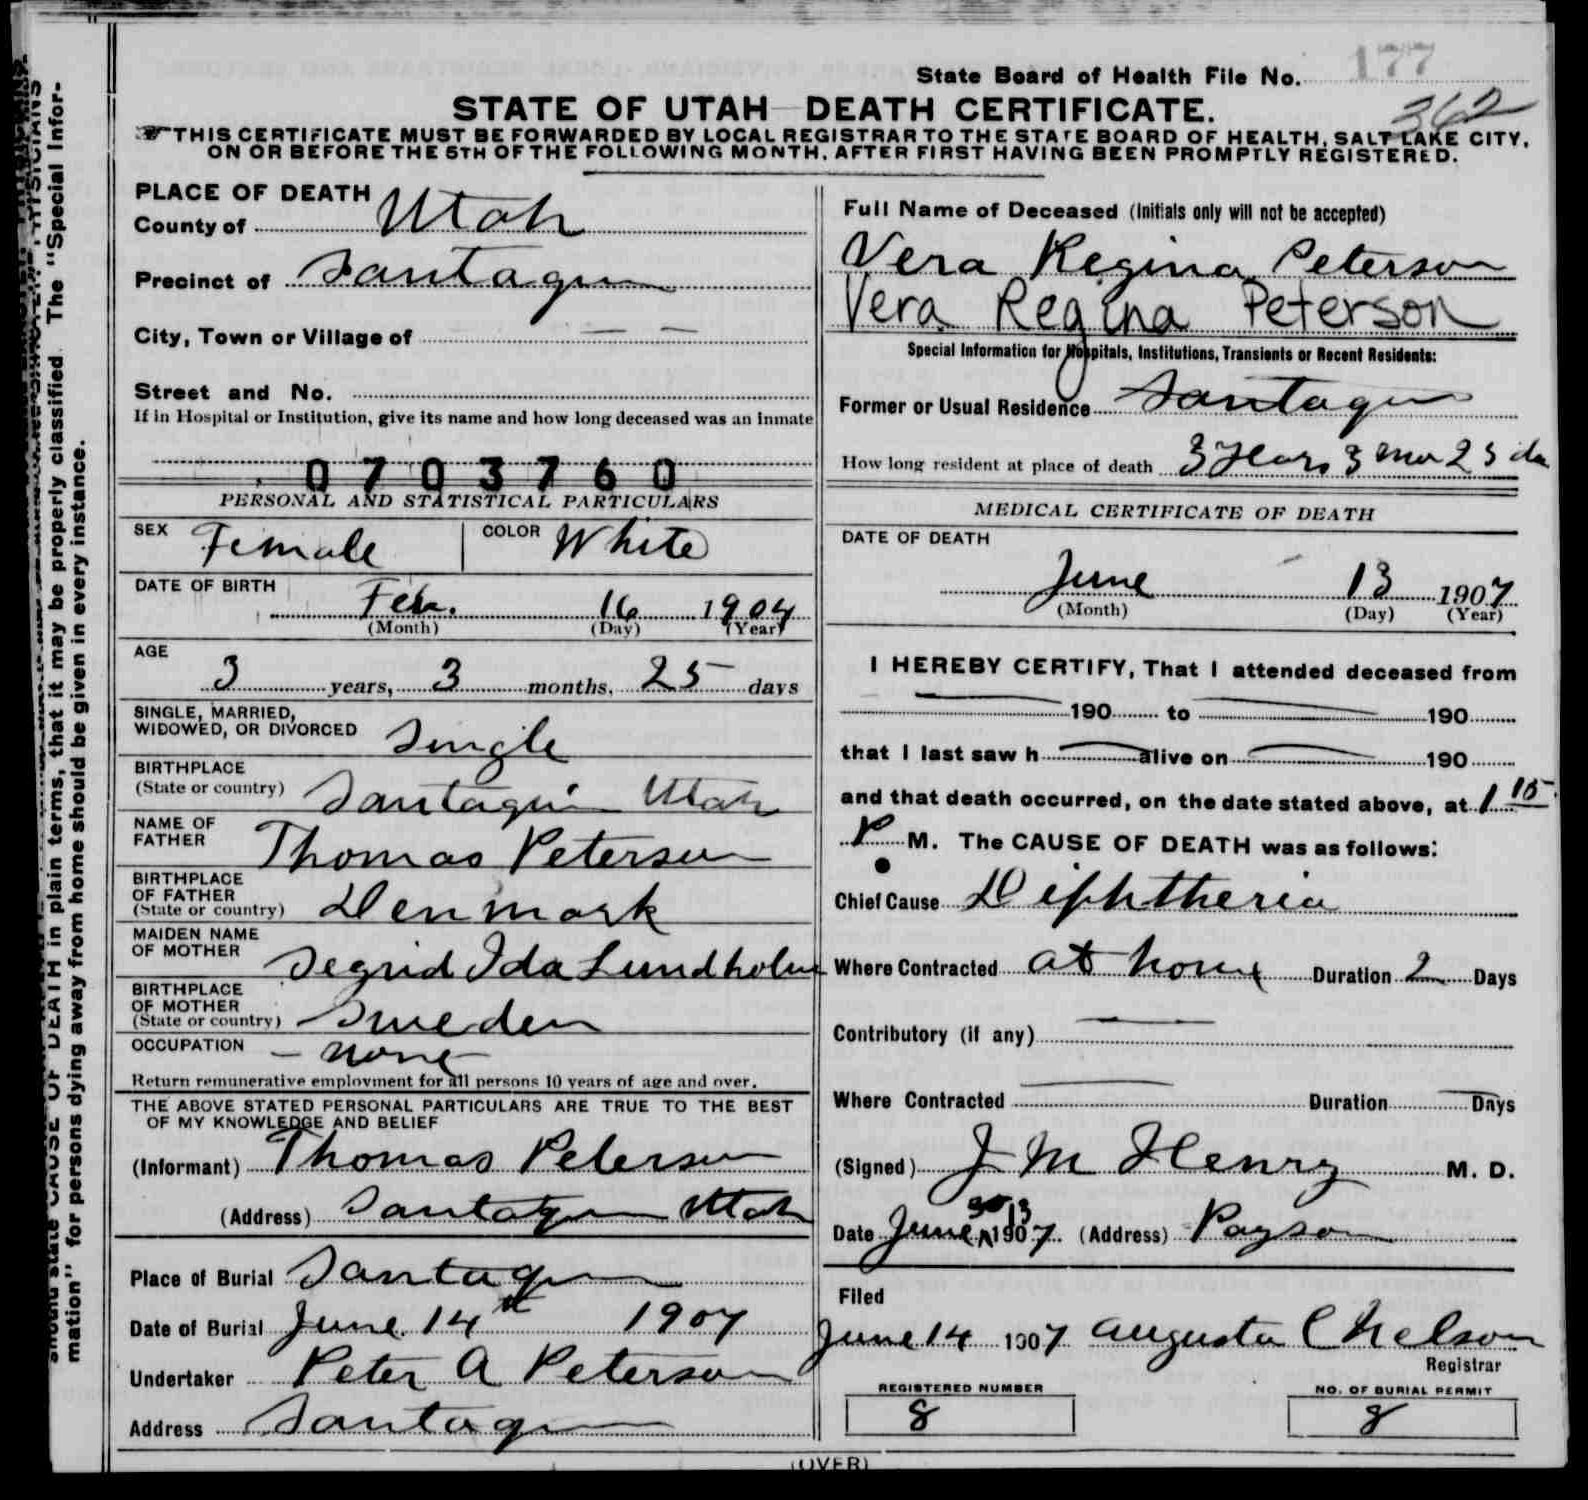 State Board of Health File No. 177
362
STATE OF UTAH DEATH CERTIFICATE.
THIS CERTIFICATE MUST BE FORWARDED BY LOCAL REGISTRAR TO THE STATE BOARD OF HEALTH, SALT LAKE CITY,
ON OR BEFORE THE 5TH OF THE FOLLOWING MONTH, AFTER FIRST HAVING BEEN PROMPTLY REGISTERED.
should state CAUSE OF DEATH in plain terms, that it may be properly classified. The "Special Infor-
mation" for persons dying away from home should be given in every instance.
PLACE OF DEATH
County of Utah
Precinct of Santaquin
City, Town or Village of — —
Street and No.
If in Hospital or Institution, give its name and how long deceased was an inmate
0703760
PERSONAL AND STATISTICAL PARTICULARS
SEX Female COLOR White
DATE OF BIRTH
Feb. 16 1904
(Month) (Day) (Year)
AGE
3 years, 3 months, 25 days
SINGLE, MARRIED,
WIDOWED, OR DIVORCED Single
BIRTHPLACE
(State or country) Santaquin Utah
NAME OF
FATHER Thomas Peterson
BIRTHPLACE
OF FATHER
(State or country) Denmark
MAIDEN NAME
OF MOTHER Segrid Ida Lundholm
BIRTHPLACE
OF MOTHER
(State or country) Sweden
OCCUPATION — none —
Return remunerative employment for all persons 10 years of age and over.
THE ABOVE STATED PERSONAL PARTICULARS ARE TRUE TO THE BEST
OF MY KNOWLEDGE AND BELIEF
(Informant) Thomas Peterson
(Address) Santaquin Utah
Place of Burial Santaquin
Date of Burial June 14th 1907
Undertaker Peter A Peterson
Address Santaquin
Full Name of Deceased (Initials only will not be accepted)
Vera Regina Peterson
Vera Regina Peterson
Special Information for Hospitals, Institutions, Transients or Recent Residents:
Former or Usual Residence Santaquin
How long resident at place of death 3 Years 3 mo 25 da
MEDICAL CERTIFICATE OF DEATH
DATE OF DEATH
June 13 1907
(Month) (Day) (Year)
I HEREBY CERTIFY, That I attended deceased from
190 to 190
that I last saw h alive on 190
and that death occurred, on the date stated above, at 1 15
P M. The CAUSE OF DEATH was as follows:
Chief Cause Diphtheria
Where Contracted at home Duration 2 Days
Contributory (if any) —
Where Contracted — Duration — Days
(Signed) J M Henry M. D.
Date June 13 1907 (Address) Payson
Filed
June 14 1907 Augusta C Nelson
Registrar
REGISTERED NUMBER
8
NO. OF BURIAL PERMIT
8
(OVER)